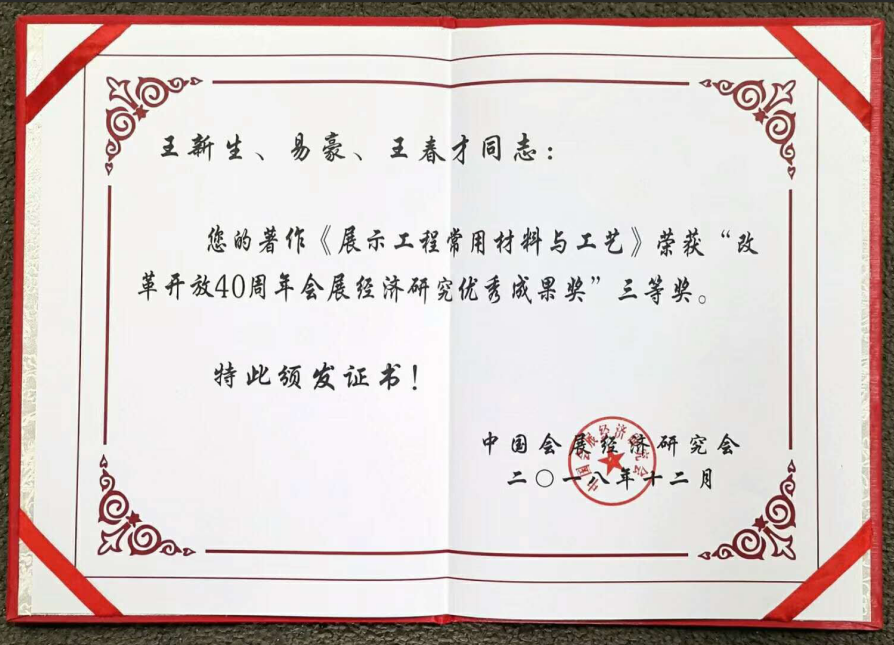 王新生、易豪、王春才同志：
您的著作《展示工程常用材料与工艺》荣获“改
革开放40周年会展经济研究优秀成果奖”三等奖。
特此颁发证书！
中国会展经济研究会
二〇一八年十二月
中国会展经济研究会